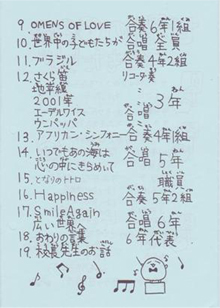 9 OMENS OF LOVE 合奏6年1組
10.世界中の子どもたちが 合唱 全員
11.ブラジル 合奏4年2組
12.さくら笛 リコーダ奏
地平線 〃
2001年 〃 3年
エーデルワイス
ウンパッパ 合唱
13.アフリカン・シンフォニー 合奏4年1組
14.いつもあの海は 合唱 5年
心の中にきらめいて
15.となりのトトロ 職員
16.Happiness 合奏5年2組
17.Smile Again 合唱 6年
広い世界へ
18.おわりの言葉 6年代表
19.校長先生のお話